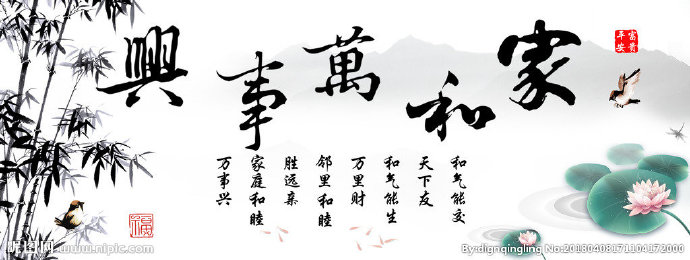 家和萬事興
富貴
平安
和气能交
天下友
和气能生
万里财
邻里和睦
胜远亲
家庭和睦
万事兴
福
昵图网 www.nipic.com
By:dignqingling No:20180408171104172000